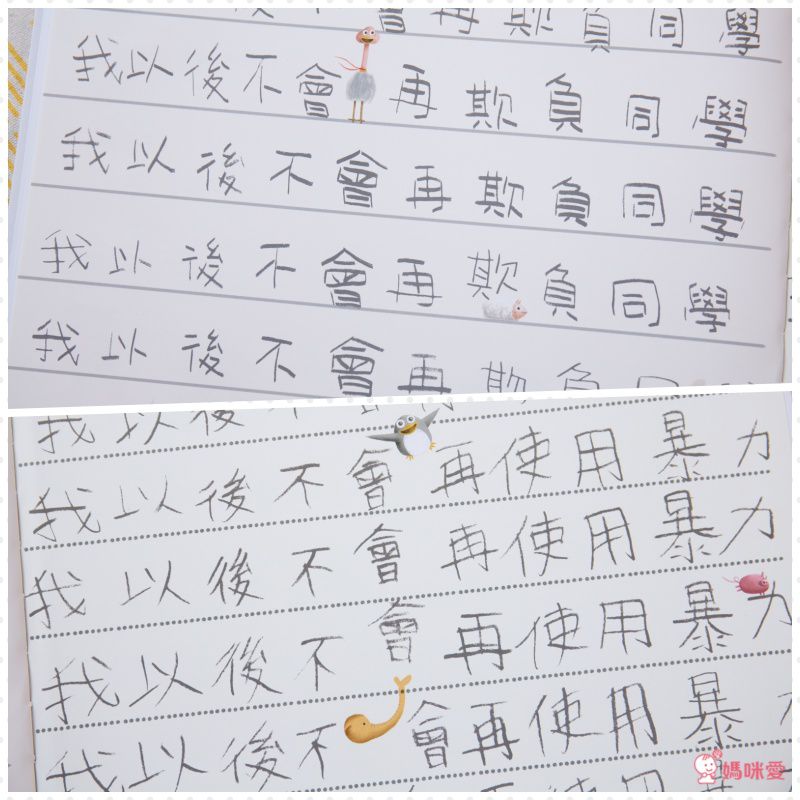 後不會再欺負同學
我以後不會再欺負同學
我以後不會再欺負同學
我以後不會再欺負同學
我以後不會再欺負同
我以後不
我以後不會再使用暴力
我以後不會再使用暴力
我以後不會再使用暴力
我以後不會再使用暴
媽咪愛